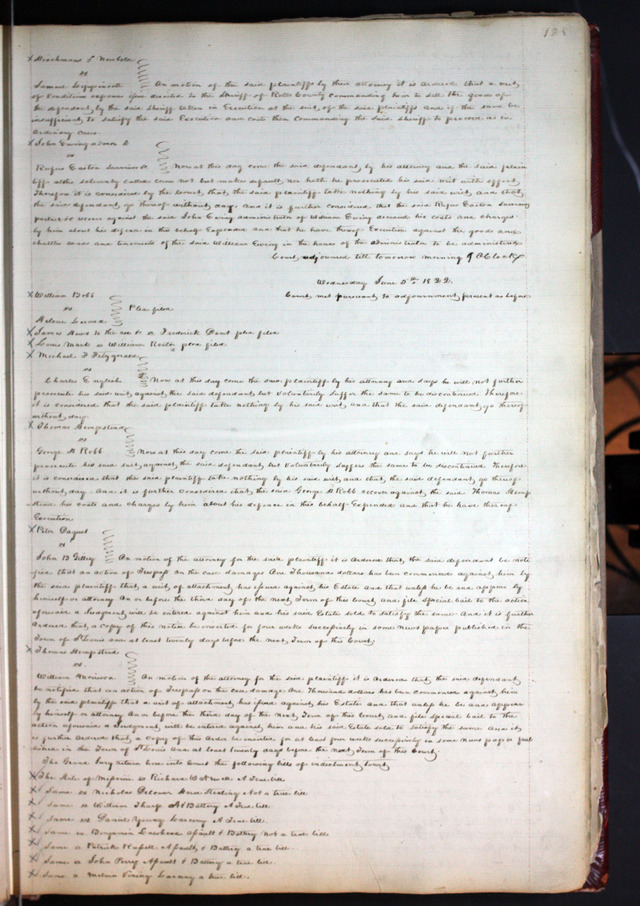 Hinchmans & Newbold
vs
Samuel On motion of the said plaintiffs by their attorney it is Ordered that a writ,
of Venditioni exponas issue directed to the Sheriff of Ralls County commanding him to sell the goods of
the defendant, by the said Sheriff taken in Execution at the suit, of the said plaintiffs and if the same be
insufficient, to satisfy the said Execution and costs then commanding the said sheriff to proceed as in
ordinary cases
John Ewing admor &
vs
Rufus Easton Survivor & Now at this day come the said defendant, by his attorney and the said plain
tiff altho solemnly called come not but makes default, nor hath he prosecuted his said writ with effect,
Therefore it is considered by the Court, that, the said plaintiff take nothing by his said writ, and that,
the said defendant, go thereof without, day. And it is further considered that the said Rufus Easton surviving
partner &c recover against the said John Ewing administrator of William Ewing deceased his costs and charges
by him about his defence in this behalf Expended and that he have thereof Execution against the goods and
chattles and tenements of the said William Ewing in the hands of the Administrator to be administered
Court, adjourned till tomorrow morning 9 OClock
Wednesday June 5th 1822.
Court, met pursuant to adjournment, present as before
William Bobb
vs Plea filed
James to the use &c vs Frederick Dent plea filed
Louis Marle vs William plea filed
Michael F Fitzgerald
vs
Charles English Now at this day come the said plaintiff by his attorney and says he will not further
prosecute his said writ, against, the said defendant, but Voluntarily suffers the same to be discontinued. Therefore
it is considered that the said plaintiff take nothing by his said writ, and that the said defendant, go thereof
without, day
Thomas Hempstead
vs
George H Robb Now at this day come the said plaintiff by his attorney and says he will not further
prosecute his said suit, against, the said defendant, but Voluntarily suffers the same to be discontinued Therefore
it is considered that the said plaintiff take nothing by his said writ, and that, the said defendant, go thereof
without, day. And it is further considered that, the said George H Robb recover against, the said Thomas Hemp
stead his costs and charges by him about his defence in this behalf Expended and that he have thereof
Execution
Peter Daguet
vs
John B On motion of the attorney for the said plaintiff it is Ordered that, the said defendant be noti
fied that an action of Trespass on the case damages One Thousand dollars has been commenced against, him by
the said plaintiff that, a writ, of attachment, has issued against, his Estate and that unless he be and appear by
himself or attorney On or before the third day of the next, Term of this Court, and file special bail to the action
aforesaid a Judgment, will be entered against him and his said Estate sold to satisfy the same And it is further
Ordered that, a copy of this notice be inserted for four weeks successively in some news paper published in the
Town of St Louis and at least twenty days before the next, Term of this Court,
Thomas Hempstead
vs
William Harrison On motion of the attorney for the said plaintiff it is Ordered that, the said defendant,
be notified that an action of Trespass on the case damage One Thousand dollars has been commenced against, him
by the said plaintiff that a writ of attachment, has issued against, his Estate and that unless he be and appear
by himself or attorney On or before the third day of the next, Term of this Court, and file special bail to the
action aforesaid a Judgment, will be entered against, him and his said Estate sold to satisfy the same And it,
is further Ordered that, a copy of this Order be inserted for at least four weeks successively in some News paper pub
lished in the Town of St Louis and at least twenty days before the next, Term of this Court,
The Grand Jury return here into Court the following bills of indictment, Court,
The State of Missouri vs Richard A True bill
Same vs Nicholas Horse Stealing Not a true bill
Same vs William Tharp Aslt & Battery A True bill.
Same vs Daniel Larceny A True bill.
Same vs Benjamin Assault & Battery not a true bill
Same vs Patrick Assault, & Battery a true bill
Same vs John Perry Assault & Battery a true bill
Same vs Larceny a true bill.